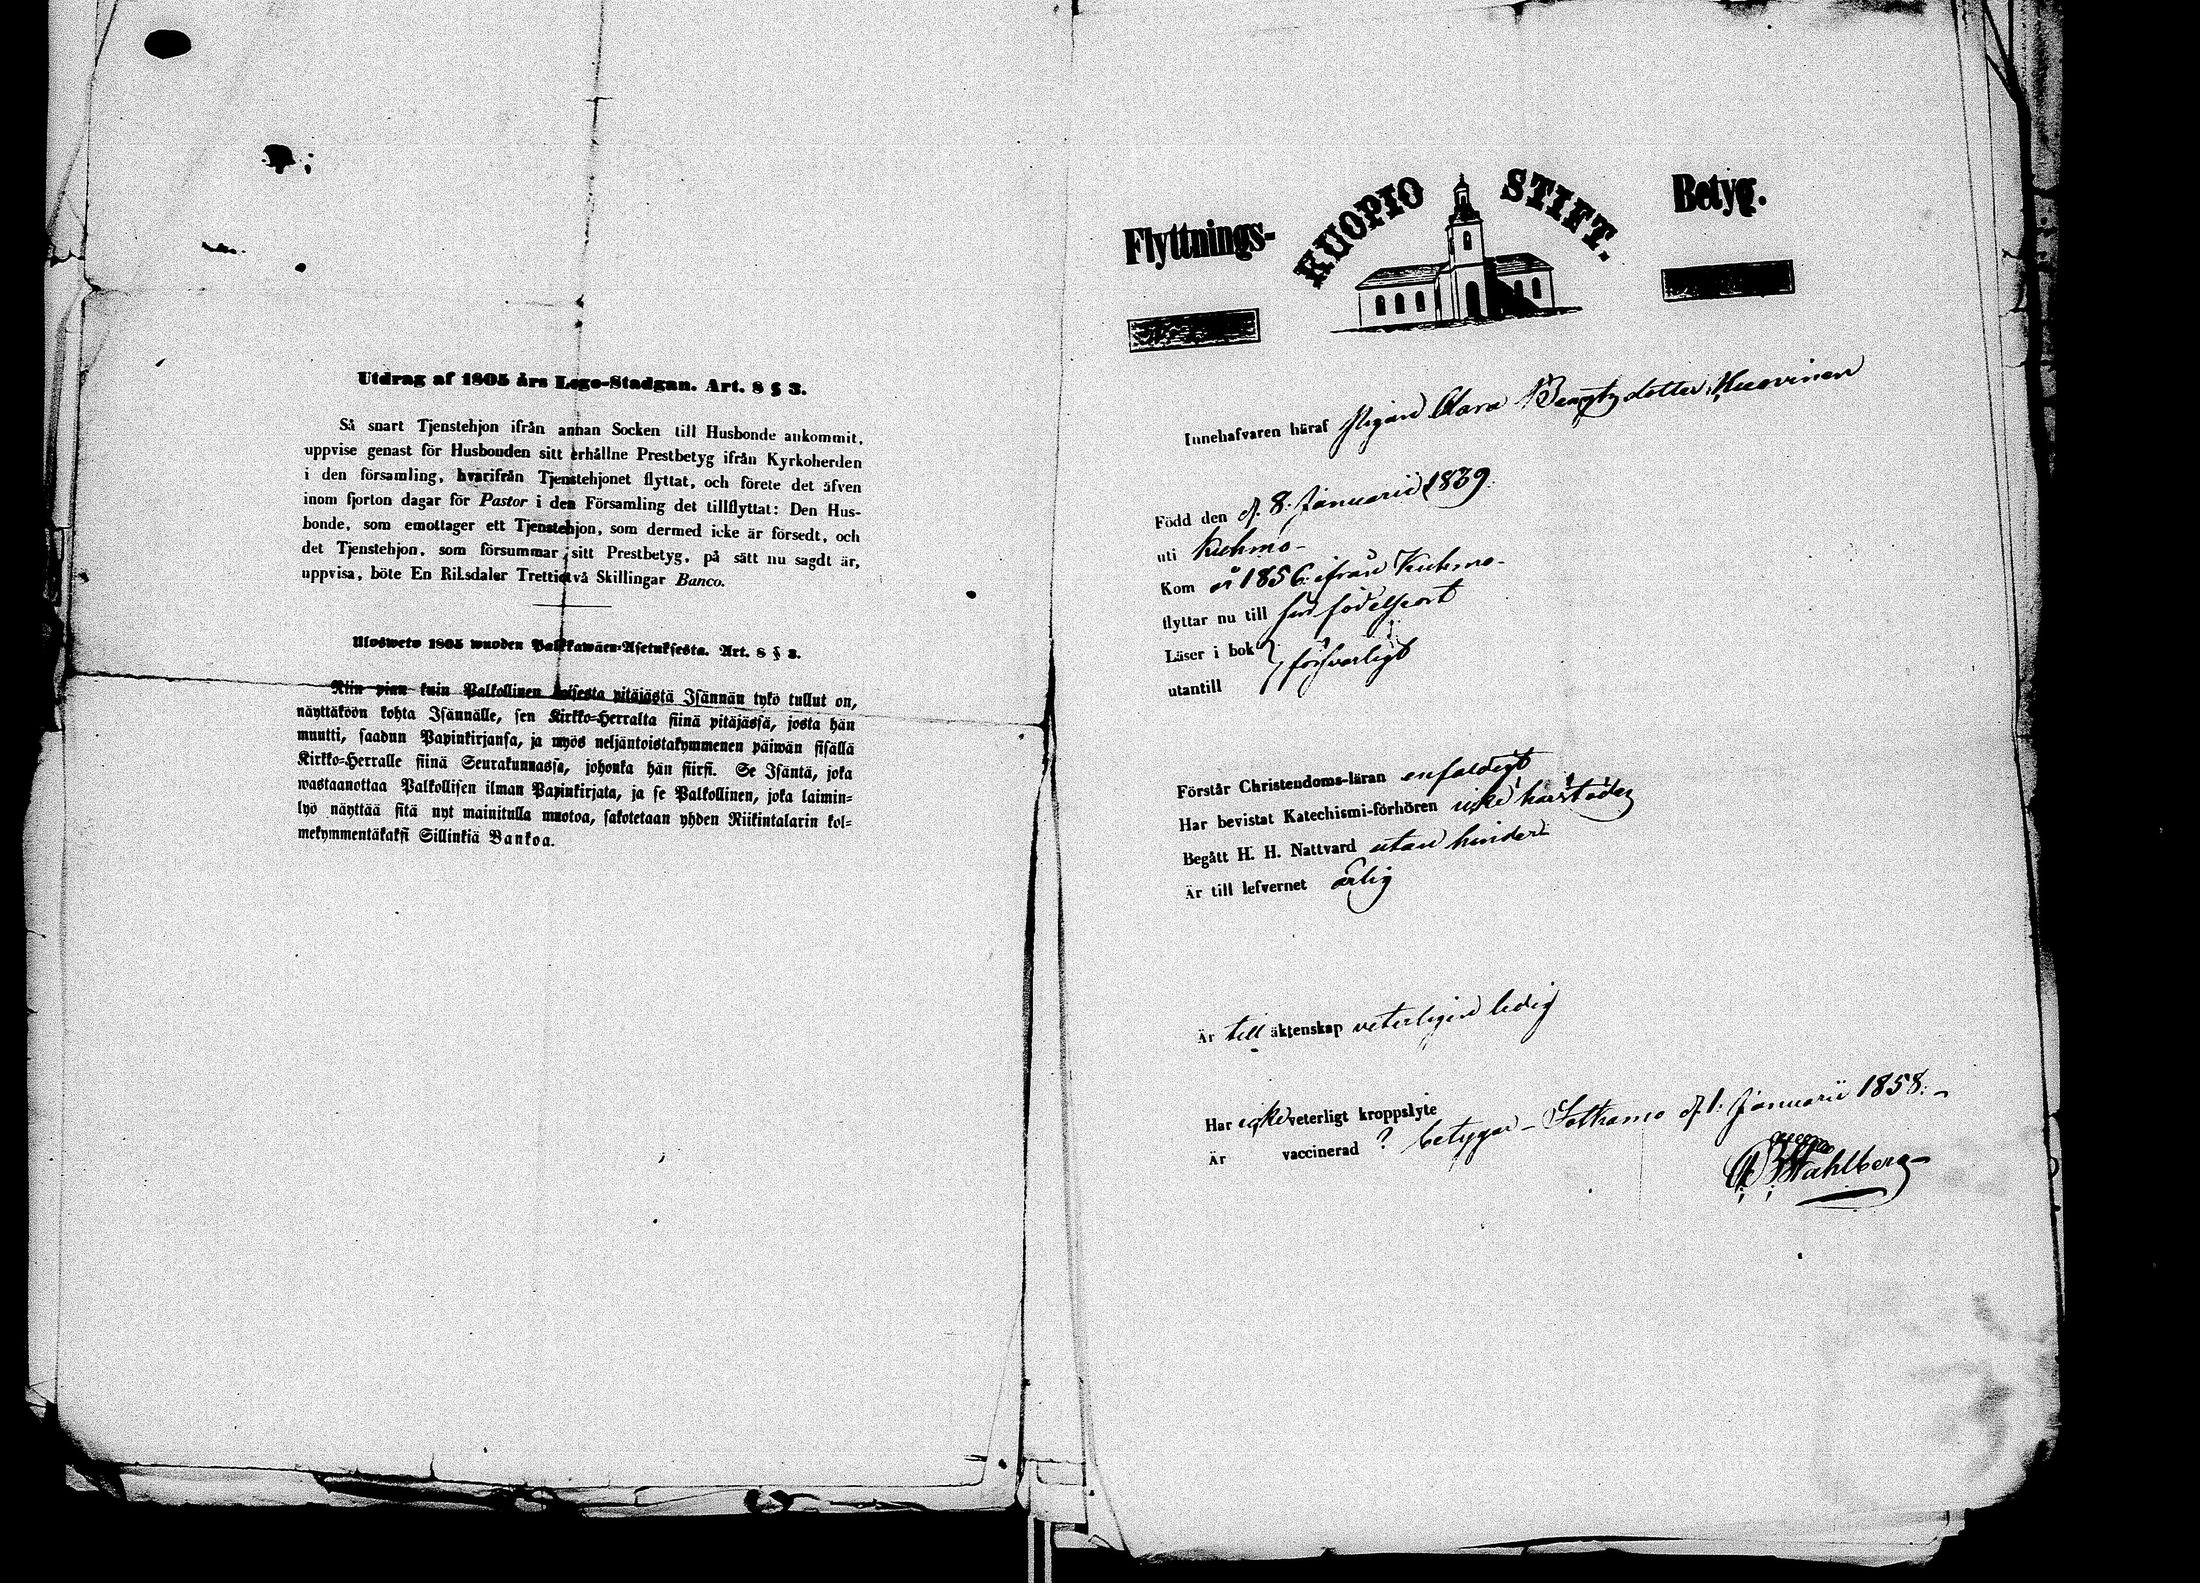 Utdrag af 1805 års Lego-Stadgan. Art. 8 § 3.
Så snart Tjenstehjon ifrån annan Socken till Husbonde ankommit,
uppvise genast för Husbonden sitt erhållne Prestbetyg ifrån Kyrkoherden
i den församling, hvarifrån Tjenstehjonet flyttat, och förete det äfven
inom fjorton dagar för Pastor i den Församling det tillflyttat: Den Hus-
bonde, som emottager ett Tjenstehjon, som dermed icke är försedt, och
det Tjenstehjon, som försummar sitt Prestbetyg, på sätt nu sagdt är,
uppvisa, böte En Riksdaler Trettiotvå Skillingar Banco.
Ulosweto 1805 wuoden Palkkawäen-Asetuksesta. Art. 8 § 3.
Niin pian kuin Palkollinen toisesta pitäjästä Isännän tykö tullut on,
näyttäköön kohta Isännälle, sen Kirkko-Herralta siinä pitäjässä, josta hän
muutti, saadun Papinkirjansa, ja myös neljäntoistakymmenen päiwän sisällä
Kirkko-Herralle siinä Seurakunnassa, johonka hän siirsi. Se Isäntä, joka
wastaanottaa Palkollisen ilman Papinkirjata, ja se Palkollinen, joka laimin-
lyö näyttää sitä nyt mainitulla muotoa, sakotetaan yhden Riikintalarin kol-
mekymmentäkaksi Sillinkiä Bankoa.
Flyttnings- KUOPIO STIFT. Betyg.
Innehafvaren häraf Pigan Clara Bengtsdotter Kuovinen
Född den d. 8. Januarii 1839.
uti Kuhmo-
Kom år 1856. ifrån Kuhmo-
flyttar nu till sin födelseort
Läser i bok
utantill försvarligt
Förstår Christendoms-läran enfaldigt
Har bevistat Katechismi-förhören icke härstädes
Begått H. H. Nattvard utan hinder
Är till lefvernet ärlig
Är till äktenskap veterligen ledig
Har icke veterligt kroppslyte
Är vaccinerad ? betygar - Sotkamo d. 1. Januarii 1858. -
Stahlberg